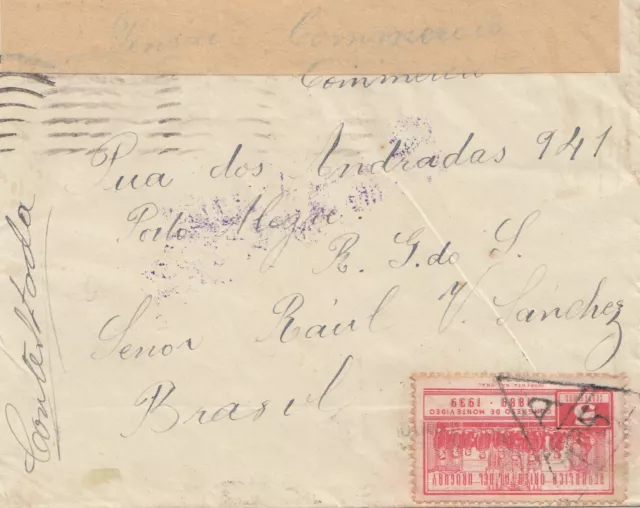 Pensión Commercio
Commercio
Rua dos Andradas 941
Porto Alegre.
R. G. do S.
Senor Raúl V. Sánchez
Brasil
Contestada
REPUBLICA ORIENTAL DEL URUGUAY
1889 - 1939
CONGRESO DE MONTEVIDEO
IMPRENTA NACIONAL